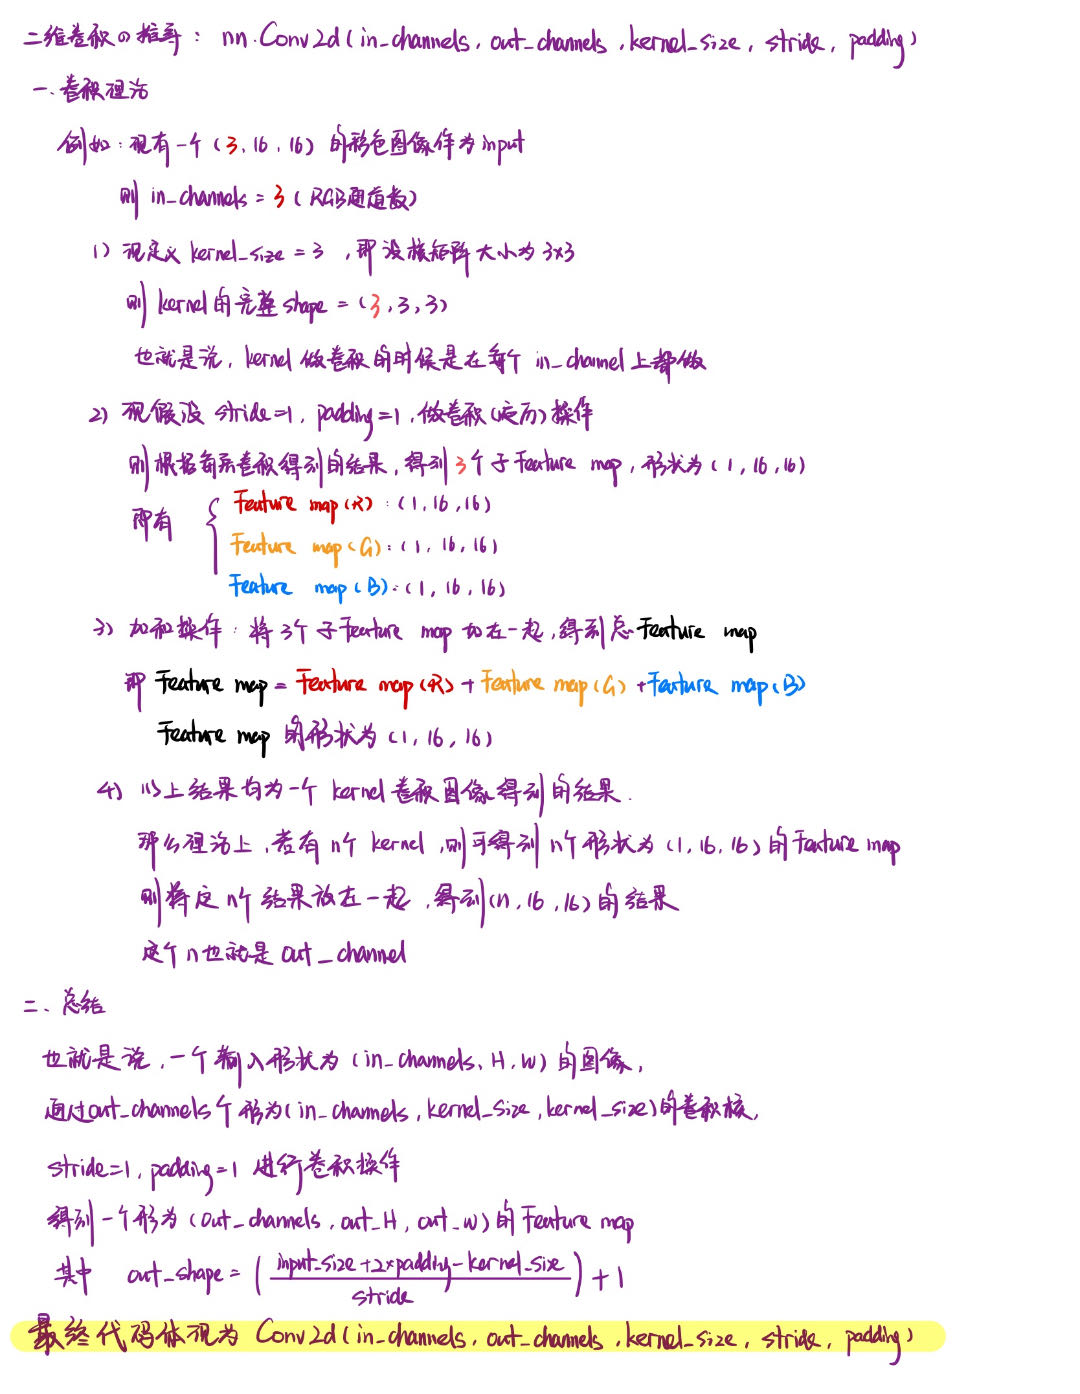 二维卷积の推导： nn.Conv2d(in_channels, out_channels, kernel_size, stride, padding)
一、卷积理论
例如：现有一个(3, 16, 16)的彩色图像作为input
则 in_channels = 3 (RGB通道数)
1) 现定义 kernel_size = 3，即设核矩阵大小为3×3
则 kernel的完整shape = (3, 3, 3)
也就是说，kernel做卷积的时候是在每个in_channel上都做
2) 现假设 stride=1, padding=1，做卷积(遍历)操作
则根据每层卷积得到的结果，得到3个子Feature map，形状为(1, 16, 16)
即有
Feature map(R)：(1, 16, 16)
Feature map(G)：(1, 16, 16)
Feature map(B)：(1, 16, 16)
3) 加和操作：将3个子Feature map加在一起，得到总Feature map
即 Feature map = Feature map(R) + Feature map(G) + Feature map(B)
Feature map 的形状为(1, 16, 16)
4) 以上结果均为一个kernel卷积图像得到的结果.
那么理论上，若有n个kernel，则可得到n个形状为(1, 16, 16)的Feature map
则将这n个结果放在一起，得到(n, 16, 16)的结果
这个n也就是out_channel
二、总结
也就是说，一个输入形状为(in_channels, H, W)的图像，
通过out_channels个形为(in_channels, kernel_size, kernel_size)的卷积核，
stride=1, padding=1 进行卷积操作
得到一个形为(out_channels, out_H, out_W)的Feature map
其中 out_shape = ( (input_size + 2×padding - kernel_size) / stride ) + 1
最终代码体现为 Conv2d(in_channels, out_channels, kernel_size, stride, padding)